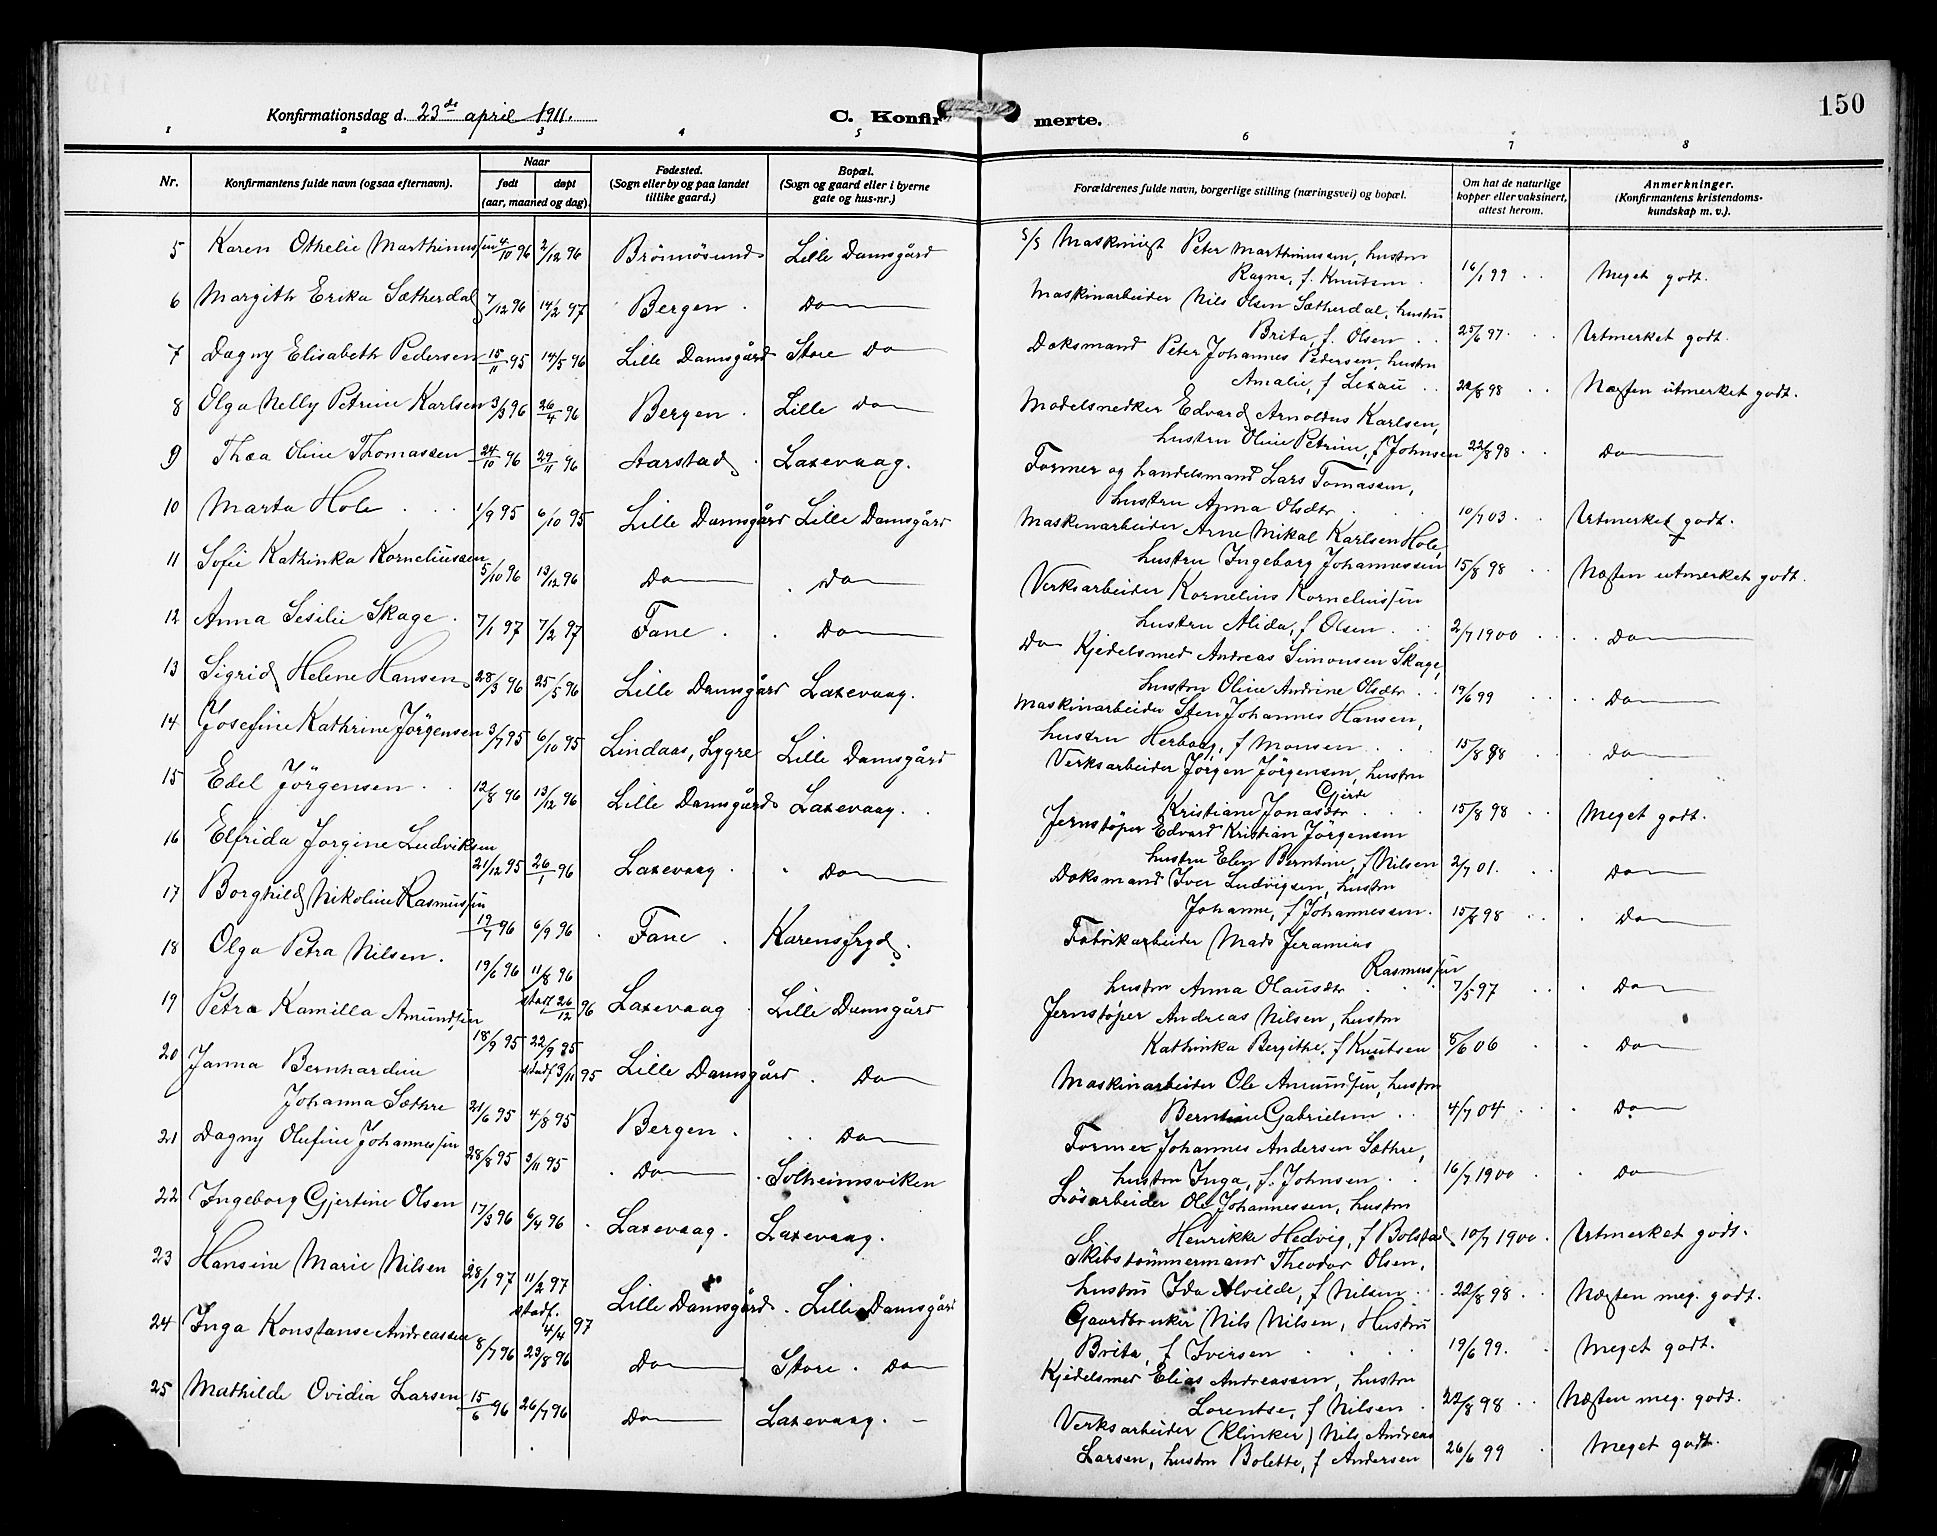 150
Konfirmationsdag d. 23de april 1911.
C. Konfirmerte.
1 2 3 4 5 6 7 8
Nr. Konfirmantens fulde navn (ogsaa efternavn). Naar født døpt (aar, maaned og dag). Fødested. (Sogn eller by og paa landet tillike gaard.) Bopæl. (Sogn og gaard eller i byerne gate og hus-nr.) Forældrenes fulde navn, borgerlige stilling (næringsvei) og bopæl. Om hat de naturlige kopper eller vaksinert, attest herom. Anmerkninger. (Konfirmantens kristendomskundskap m. v.).
5 Karen Othelie Marthinussen 4/10 96 2/12 96 Brönnösund Lille Damsgård S/S Maskinist Peter Marthinussen, hustru Ragna, f. Knutsen 16/1 99 Meget godt.
6 Margith Erika Sætherdal 7/12 96 14/2 97 Bergen Do Maskinarbeider Nils Olsen Sætherdal, hustru Brita, f. Olsen 25/6 97 Utmerket godt.
7 Dagny Elisabeth Pedersen 15/11 95 14/5 96 Lille Damsgård Store Do Doksmand Peter Johannes Pedersen, hustru Amalie, f Lexau 22/8 98 Næsten utmerket godt.
8 Olga Nelly Petrine Karlsen 3/3 96 26/4 96 Bergen Lille Do Modelsnedker Edvard Arnoldus Karlsen, hustru Oline Petrine, f Johnsen 22/8 98 Do
9 Thea Oline Thomassen 24/10 96 29/11 96 Aarstad Laxevaag. Former og handelsmand Lars Tomassen, hustru Anna Olsdtr 10/7 03 Utmerket godt.
10 Marta Hole 1/9 95 6/10 95 Lille Damsgård Lille Damsgård Maskinarbeider Arne Mikal Karlsen Hole, hustru Ingeborg Johannessen 15/8 98 Næsten utmerket godt.
11 Sofie Kathinka Korneliussen 5/10 96 13/12 96 Do Do Verksarbeider Kornelius Korneliussen hustru Alida, f Olsen 2/7 1900 Do
12 Anna Sesilie Skage 7/1 97 7/2 97 Fane Do Do Kjedelsmed Andreas Simonsen Skage, hustru Oline Andrine Olsdtr 19/6 99 Do
13 Sigrid Helene Hansen 28/3 96 25/5 96 Lille Damsgård Laxevaag. Maskinarbeider Sten Johannes Hansen, hustru Herborg, f Monsen 15/8 98 Do
14 Josefine Kathrine Jörgensen 3/7 95 6/10 95 Lindaas, Lygre Lille Damsgård Verksarbeider Jörgen Jörgensen, hustru Kristiane Jonasdtr Gjerde 15/8 98 Meget godt.
15 Edel Jörgensen 12/8 96 13/12 96 Lille Damsgård Laxevaag Jernstøper Edvard Kristian Jörgensen hustru Elen Berntine, f Nilsen 2/7 01. Do
16 Elfrida Jorgine Ludviksen 21/12 95 26/1 96 Laxevaag Do Doksmand Iver Ludvigsen, hustru Johanne, f Johannessen. 15/8 98 Do
17 Borghild Nikoline Rasmussen 19/7 96 6/9 96 Fane Karensfryd Fabrikarbeider Mads Jeramias Rasmussen hustru Anna Olausdtr 7/5 97 Do
18 Olga Petra Nilsen. 19/6 96 11/8 96 stadf 26/12 96 Laxevaag Lille Damsgård Jernstöper Andreas Nilsen, hustru Kathinka Bergithe, f Knutsen 8/6 06 Do
19 Petra Kamilla Amundsen 18/9 95 22/9 95 stadf 3/11 95 Lille Damsgård Do Maskinarbeider Ole Amundsen, hustru Berntine Gabrielsen 4/7 04 Do
20 Janna Bernhardine Johanna Sæthre 21/6 95 4/8 95 Bergen Do Former Johannes Andersen Sæthre, hustru Inga, f. Johnsen 16/7 1900 Do
21 Dagny Olufine Johannessen 28/8 95 3/11 95 Do Solheimsviken Lösarbeider Ole Johannessen, hustru Henrikke Hedvig, f Bolstad 10/7 1900 Utmerket godt.
22 Ingeborg Gjertine Olsen 17/3 96 6/4 96 Laxevaag. Laxevaag. Skibstömmermand Theodor Olsen, hustru Ida Alvilde, f Nilsen 22/8 98 Næsten meg. godt.
23 Hansine Marie Nilsen 28/1 97 11/2 97 stadf. 4/4 97 Lille Damsgård Lille Damsgård Gaardbruker Nils Nilsen, Hustru Brita, f Iversen 19/6 99. Meget godt.
24 Inga Konstanse Andreassen 8/7 96 23/8 96 Do Store Do Kjedelsmed Elias Andreassen, hustru Lorentse, f Nilsen 22/8 98 Næsten meg. godt.
25 Mathilde Ovidia Larsen 15/6 96 26/7 96 Do Laxevaag. Verksarbeider (Klinker) Nils Andreas Larsen, hustru Bolette, f Andersen 26/6 99 Meget godt.